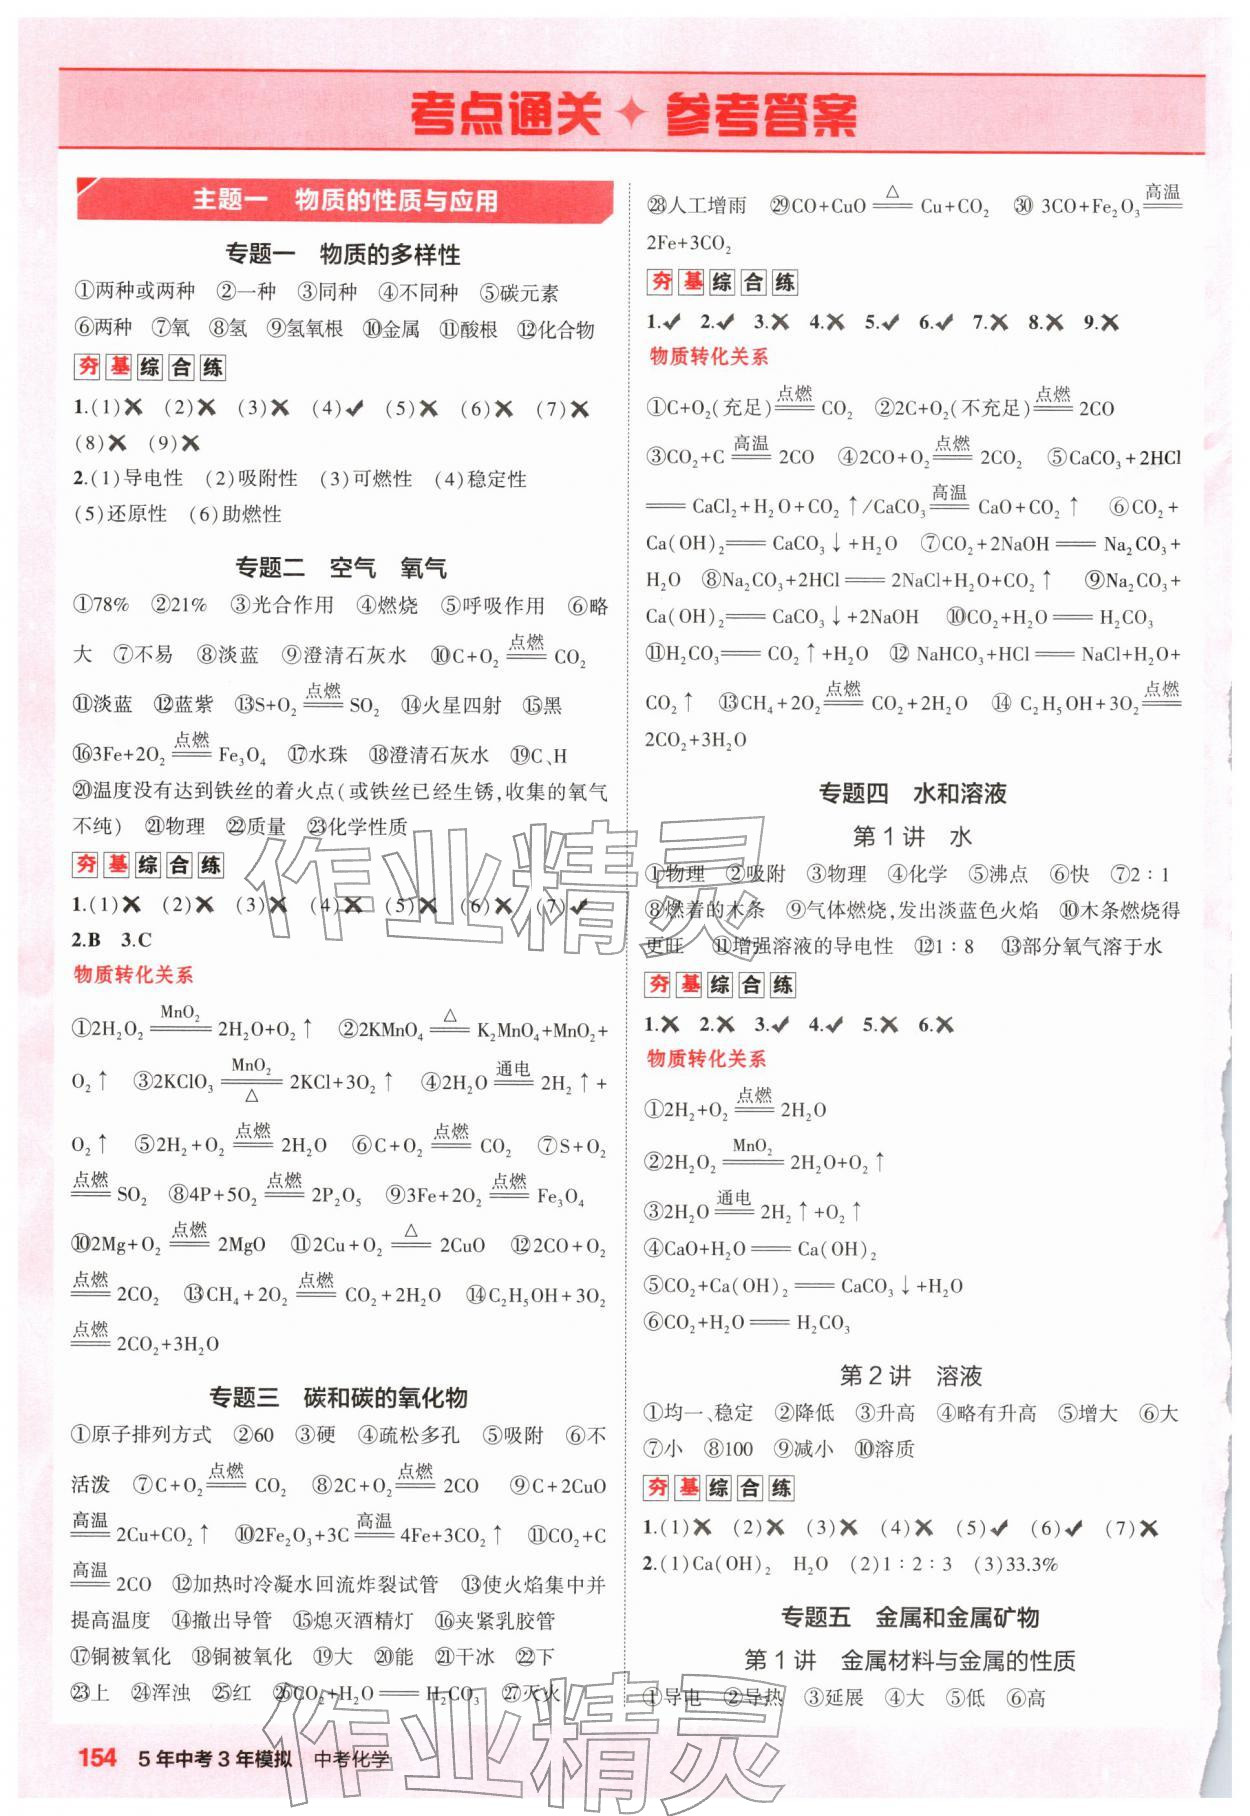 考点通关 参考答案
主题一 物质的性质与应用
专题一 物质的多样性
①两种或两种 ②一种 ③同种 ④不同种 ⑤碳元素
⑥两种 ⑦氧 ⑧氢 ⑨氢氧根 ⑩金属 ⑪酸根 ⑫化合物
夯基综合练
1.(1)✗ (2)✗ (3)✗ (4)✓ (5)✗ (6)✗ (7)✗
(8)✗ (9)✗
2.(1)导电性 (2)吸附性 (3)可燃性 (4)稳定性
(5)还原性 (6)助燃性
专题二 空气 氧气
①78% ②21% ③光合作用 ④燃烧 ⑤呼吸作用 ⑥略
大 ⑦不易 ⑧淡蓝 ⑨澄清石灰水 ⑩C+O₂ ══点燃══ CO₂
⑪淡蓝 ⑫蓝紫 ⑬S+O₂ ══点燃══ SO₂ ⑭火星四射 ⑮黑
⑯3Fe+2O₂ ══点燃══ Fe₃O₄ ⑰水珠 ⑱澄清石灰水 ⑲C、H
⑳温度没有达到铁丝的着火点(或铁丝已经生锈,收集的氧气
不纯) ㉑物理 ㉒质量 ㉓化学性质
夯基综合练
1.(1)✗ (2)✗ (3)✗ (4)✗ (5)✗ (6)✗ (7)✓
2.B 3.C
物质转化关系
①2H₂O₂ ══MnO₂══ 2H₂O+O₂↑ ②2KMnO₄ ══△══ K₂MnO₄+MnO₂+
O₂↑ ③2KClO₃ ══MnO₂/△══ 2KCl+3O₂↑ ④2H₂O ══通电══ 2H₂↑+
O₂↑ ⑤2H₂+O₂ ══点燃══ 2H₂O ⑥C+O₂ ══点燃══ CO₂ ⑦S+O₂
══点燃══ SO₂ ⑧4P+5O₂ ══点燃══ 2P₂O₅ ⑨3Fe+2O₂ ══点燃══ Fe₃O₄
⑩2Mg+O₂ ══点燃══ 2MgO ⑪2Cu+O₂ ══△══ 2CuO ⑫2CO+O₂
══点燃══ 2CO₂ ⑬CH₄+2O₂ ══点燃══ CO₂+2H₂O ⑭C₂H₅OH+3O₂
══点燃══ 2CO₂+3H₂O
专题三 碳和碳的氧化物
①原子排列方式 ②60 ③硬 ④疏松多孔 ⑤吸附 ⑥不
活泼 ⑦C+O₂ ══点燃══ CO₂ ⑧2C+O₂ ══点燃══ 2CO ⑨C+2CuO
══高温══ 2Cu+CO₂↑ ⑩2Fe₂O₃+3C ══高温══ 4Fe+3CO₂↑ ⑪CO₂+C
══高温══ 2CO ⑫加热时冷凝水回流炸裂试管 ⑬使火焰集中并
提高温度 ⑭撤出导管 ⑮熄灭酒精灯 ⑯夹紧乳胶管
⑰铜被氧化 ⑱铜被氧化 ⑲大 ⑳能 ㉑干冰 ㉒下
㉓上 ㉔浑浊 ㉕红 ㉖CO₂+H₂O ══ H₂CO₃ ㉗灭火
154 5年中考3年模拟 中考化学
㉘人工增雨 ㉙CO+CuO ══△══ Cu+CO₂ ㉚3CO+Fe₂O₃ ══高温══
2Fe+3CO₂
夯基综合练
1.✓ 2.✓ 3.✗ 4.✗ 5.✓ 6.✓ 7.✗ 8.✗ 9.✗
物质转化关系
①C+O₂(充足) ══点燃══ CO₂ ②2C+O₂(不充足) ══点燃══ 2CO
③CO₂+C ══高温══ 2CO ④2CO+O₂ ══点燃══ 2CO₂ ⑤CaCO₃+2HCl
══ CaCl₂+H₂O+CO₂↑/CaCO₃ ══高温══ CaO+CO₂↑ ⑥CO₂+
Ca(OH)₂ ══ CaCO₃↓+H₂O ⑦CO₂+2NaOH ══ Na₂CO₃+
H₂O ⑧Na₂CO₃+2HCl ══ 2NaCl+H₂O+CO₂↑ ⑨Na₂CO₃+
Ca(OH)₂ ══ CaCO₃↓+2NaOH ⑩CO₂+H₂O ══ H₂CO₃
⑪H₂CO₃ ══ CO₂↑+H₂O ⑫NaHCO₃+HCl ══ NaCl+H₂O+
CO₂↑ ⑬CH₄+2O₂ ══点燃══ CO₂+2H₂O ⑭C₂H₅OH+3O₂ ══点燃══
2CO₂+3H₂O
专题四 水和溶液
第1讲 水
①物理 ②吸附 ③物理 ④化学 ⑤沸点 ⑥快 ⑦2∶1
⑧燃着的木条 ⑨气体燃烧,发出淡蓝色火焰 ⑩木条燃烧得
更旺 ⑪增强溶液的导电性 ⑫1∶8 ⑬部分氧气溶于水
夯基综合练
1.✗ 2.✗ 3.✓ 4.✓ 5.✗ 6.✗
物质转化关系
①2H₂+O₂ ══点燃══ 2H₂O
②2H₂O₂ ══MnO₂══ 2H₂O+O₂↑
③2H₂O ══通电══ 2H₂↑+O₂↑
④CaO+H₂O ══ Ca(OH)₂
⑤CO₂+Ca(OH)₂ ══ CaCO₃↓+H₂O
⑥CO₂+H₂O ══ H₂CO₃
第2讲 溶液
①均一、稳定 ②降低 ③升高 ④略有升高 ⑤增大 ⑥大
⑦小 ⑧100 ⑨减小 ⑩溶质
夯基综合练
1.(1)✗ (2)✗ (3)✗ (4)✗ (5)✓ (6)✓ (7)✗
2.(1)Ca(OH)₂ H₂O (2)1∶2∶3 (3)33.3%
专题五 金属和金属矿物
第1讲 金属材料与金属的性质
①导电 ②导热 ③延展 ④大 ⑤低 ⑥高
作业精灵
作业精灵